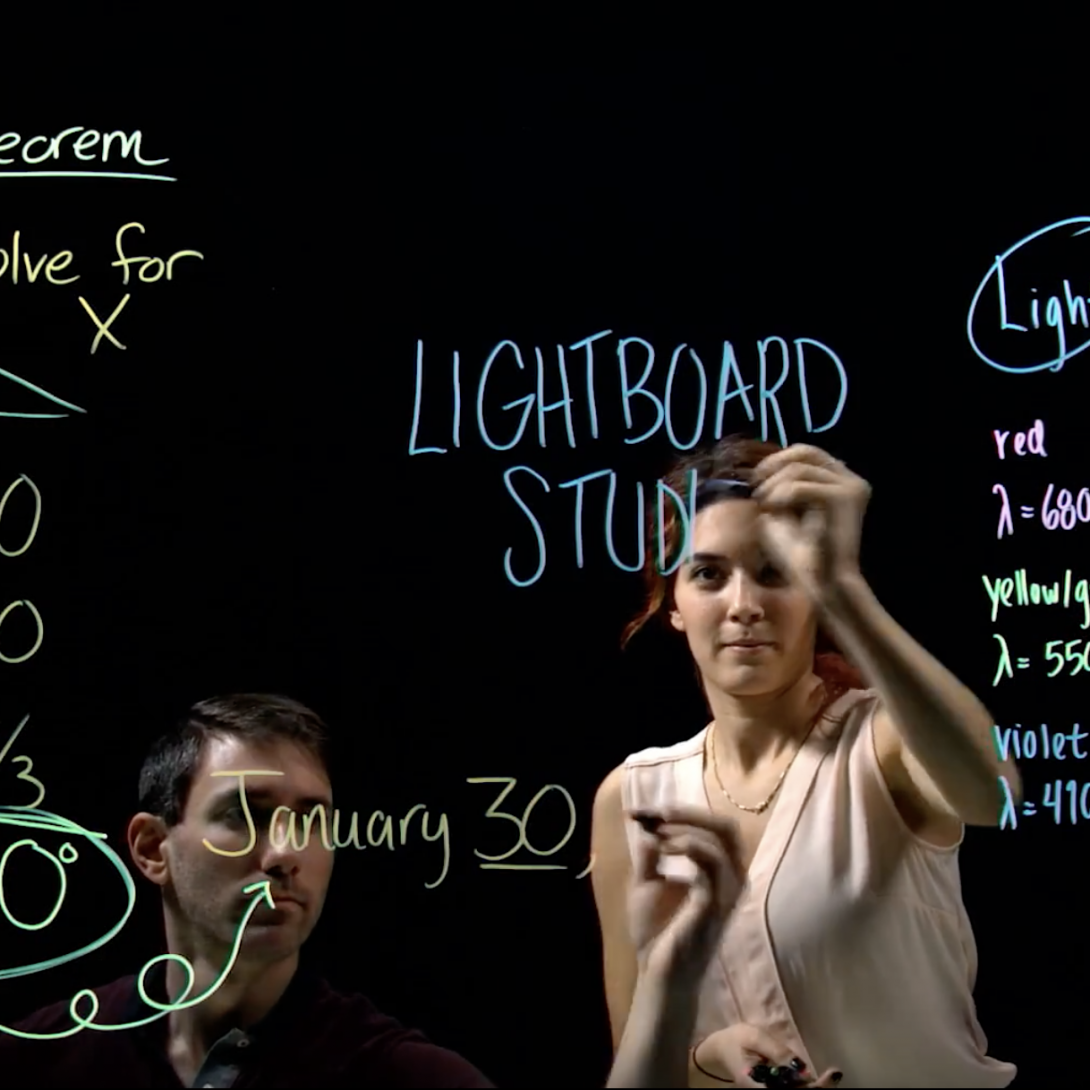 eorem
olve for
X
0
0
/3
0°
LIGHTBOARD
STUDI
January 30,
Ligh
red
λ = 680
yellow/g
λ = 550
violet
λ = 410